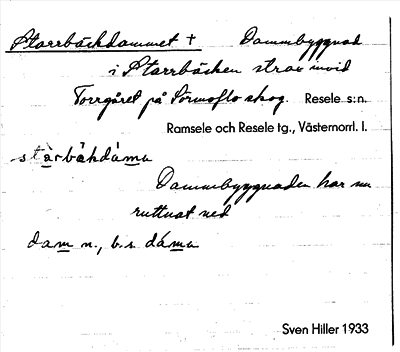 Starrbäckdammet + Dammbyggnad
i Starrbäcken strax invid
Torrgåret på Sörmoflo skog. Resele s:n.
Ramsele och Resele tg., Västernorrl. l.
stàrbäkdáma
Dammbyggnaden har nu
ruttnat ned
dam n., b.s. dáma
Sven Hiller 1933